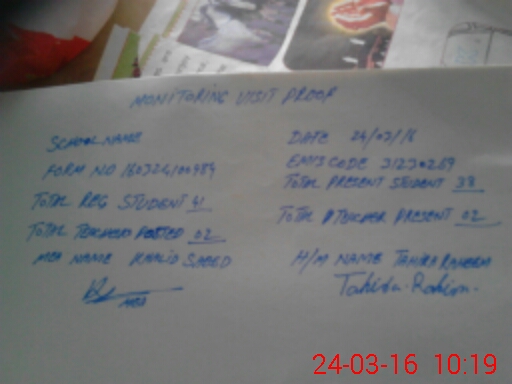 MONITORING VISIT PROOF
SCHOOL NAME
DATE 24/03/16
FORM NO 160324100989
EMIS CODE 31230259
TOTAL REG STUDENT 41
TOTAL PRESENT STUDENT 38
TOTAL TEACHERS POSTED 02
TOTAL TEACHER PRESENT 02
MEA NAME KHALID SAEED
H/M NAME TAHIRA RAHEEM
MEA
Tahira Rahim.
24-03-16 10:19